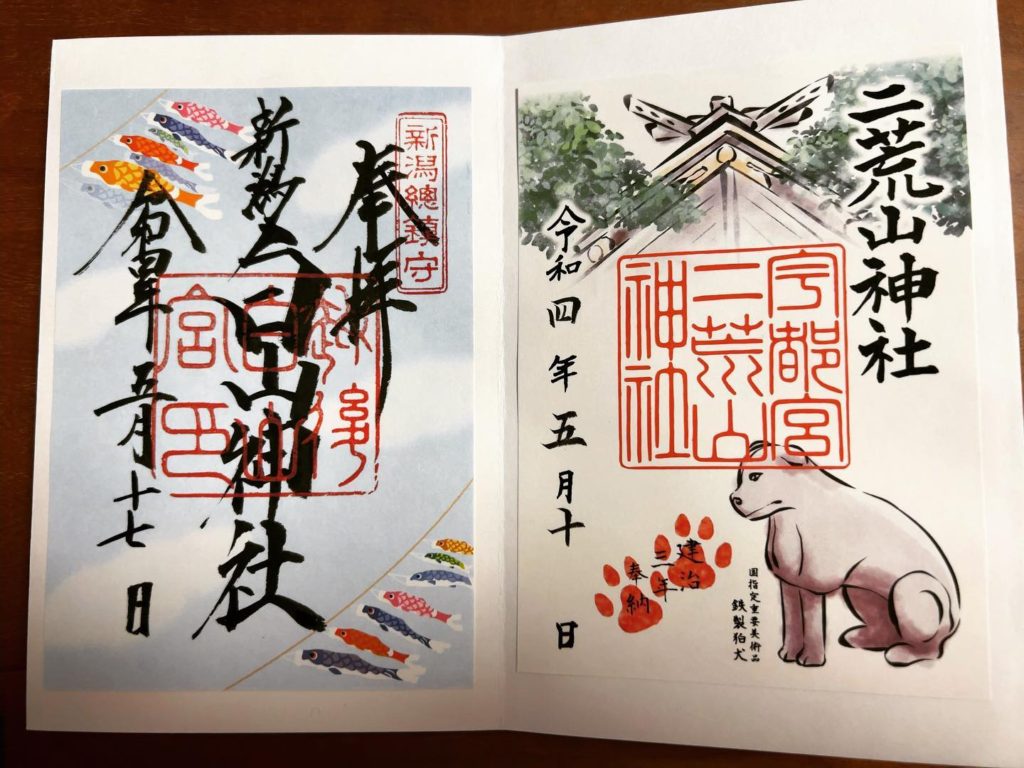 新潟總鎮守
奉拝
新潟
白山神社
白山
宮印
令和四年
五月十七日
二荒山神社
宇都宮
二荒山
神社
令和四年五月十日
建治
三年
奉納
国指定重要美術品
鉄製狛犬